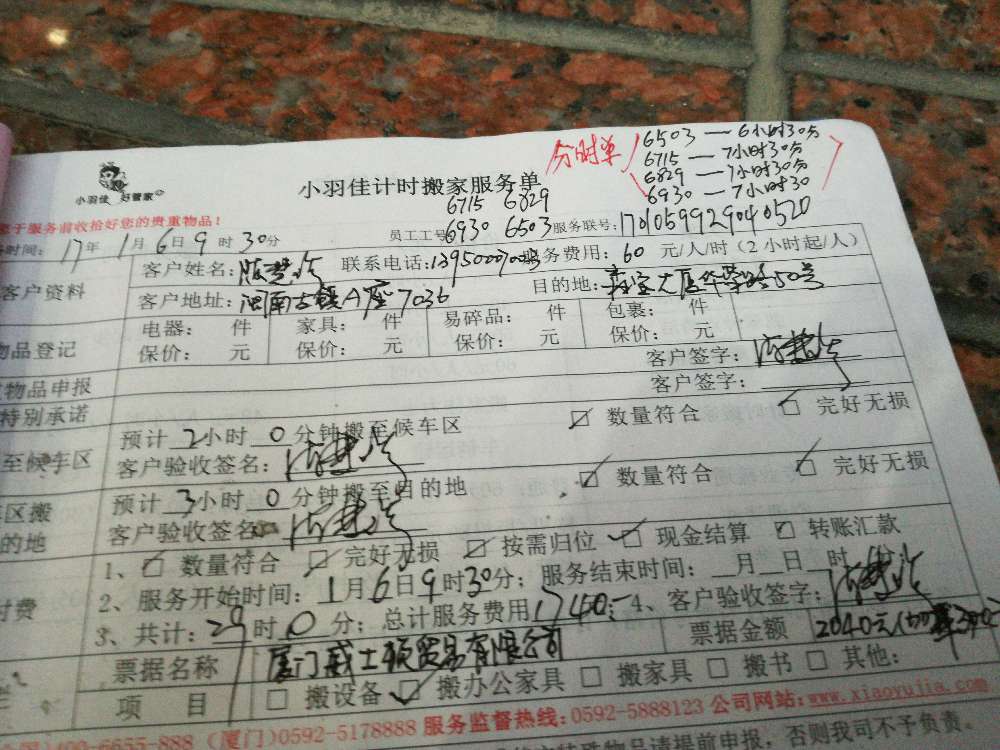 分时单
6503 — 6小时30分
6715 — 7小时30分
6829 — 7小时30分
6930 — 7小时30
小羽佳 好管家
小羽佳计时搬家服务单
于服务前收拾好您的贵重物品!
6715 6829
时间: 17年 1月6日9时30分 员工工号 6930 6503 服务联号: 1701059929040520
客户资料 客户姓名: 联系电话: 服务费用: 60 元/人/时 (2小时起/人)
客户地址: 闽南古镇A座7036 目的地: 大厦华荣路50号
物品登记 电器: 件 家具: 件 易碎品: 件 包裹: 件
保价: 元 保价: 元 保价: 元 保价: 元
物品申报 客户签字:
特别承诺 客户签字:
至候车区 预计 2小时 0 分钟搬至候车区 ☑ 数量符合 ☑ 完好无损
客户验收签名:
区搬 预计 3小时 0 分钟搬至目的地 ☑ 数量符合 ☑ 完好无损
的地 客户验收签名:
付费 1、☑ 数量符合 ☑ 完好无损 ☑ 按需归位 ☑ 现金结算 ☑ 转账汇款
2、服务开始时间: 1月6日9时30分; 服务结束时间: 月 日 时 分
3、共计: 29时0分; 总计服务费用 1740; 4、客户验收签字:
票据名称 厦门威士顿贸易有限公司 票据金额 2040元
项目 □ 搬设备 ☑ 搬办公家具 □ 搬家具 □ 搬书 □ 其他:
400-6655-888 (厦门)0592-5178888 服务监督热线:0592-5888123 公司网站:www.xiaoyujia.com
特殊物品请提前申报, 否则我司不予负责。